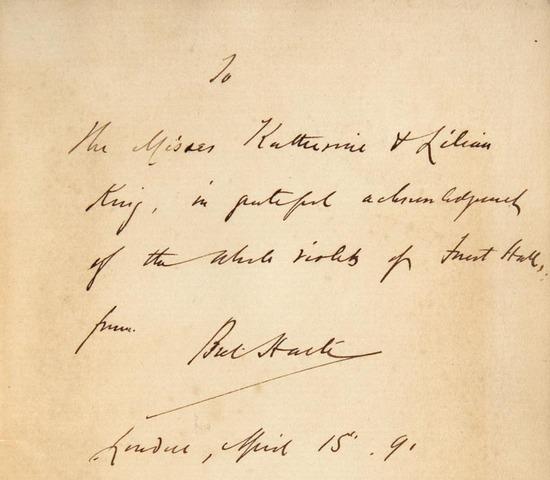 To
The Misses Katherine & Lilian
King, in grateful acknowledgment
of the white violets of Forest Hall,
from
Bret Harte
London, April 15. 91